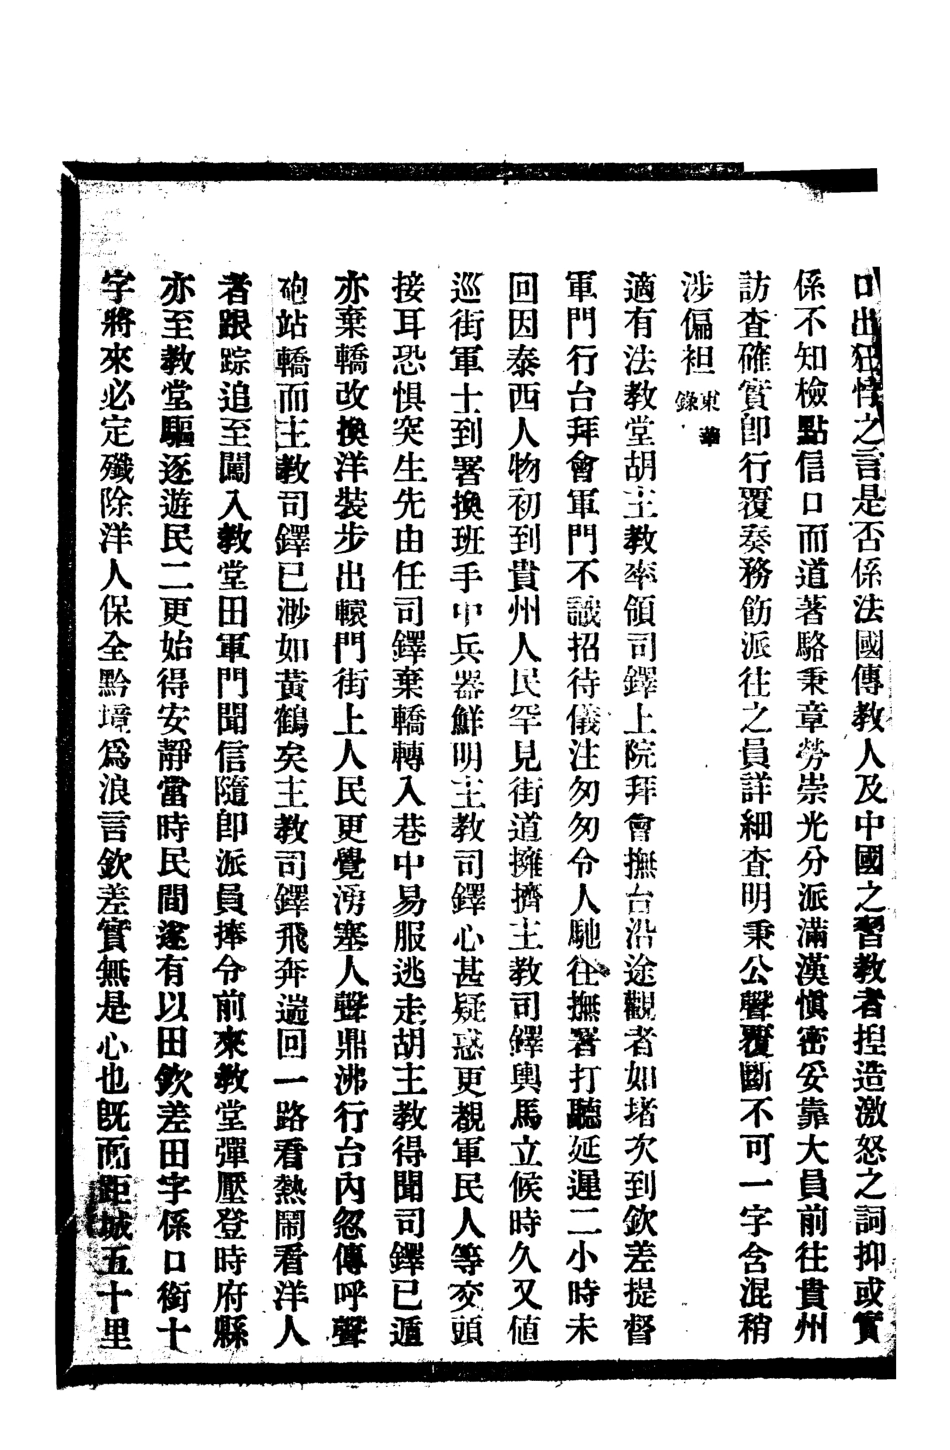 口出狂悖之言是否係法國傳教人及中國之習教者揑造激怒之詞抑或實
係不知檢點信口而道著駱秉章勞崇光分派滿漢愼密妥靠大員前往貴州
訪查確實卽行覆奏務飭派往之員詳細查明秉公聲覆斷不可一字含混稍
涉偏袒東華錄
適有法教堂胡主教率領司鐸上院拜會撫台沿途觀者如堵次到欽差提督
軍門行台拜會軍門不識招待儀注匆匆令人馳往撫署打聽延遲二小時未
回因泰西人物初到貴州人民罕見街道擁擠主教司鐸輿馬立候時久又値
巡街軍士到署換班手中兵器鮮明主教司鐸心甚疑惑更覩軍民人等交頭
接耳恐惧突生先由任司鐸棄轎轉入巷中易服逃走胡主教得聞司鐸已遁
亦棄轎改換洋裝步出轅門街上人民更覺湧塞人聲鼎沸行台內忽傳呼聲
砲站轎而主教司鐸已渺如黃鶴矣主教司鐸飛奔遄回一路看熱鬧看洋人
者跟踪追至闖入教堂田軍門聞信隨卽派員捧令前來教堂彈壓登時府縣
亦至教堂驅逐遊民二更始得安靜當時民間遂有以田欽差田字係口銜十
字將來必定殲除洋人保全黔境爲浪言欽差實無是心也旣而距城五十里